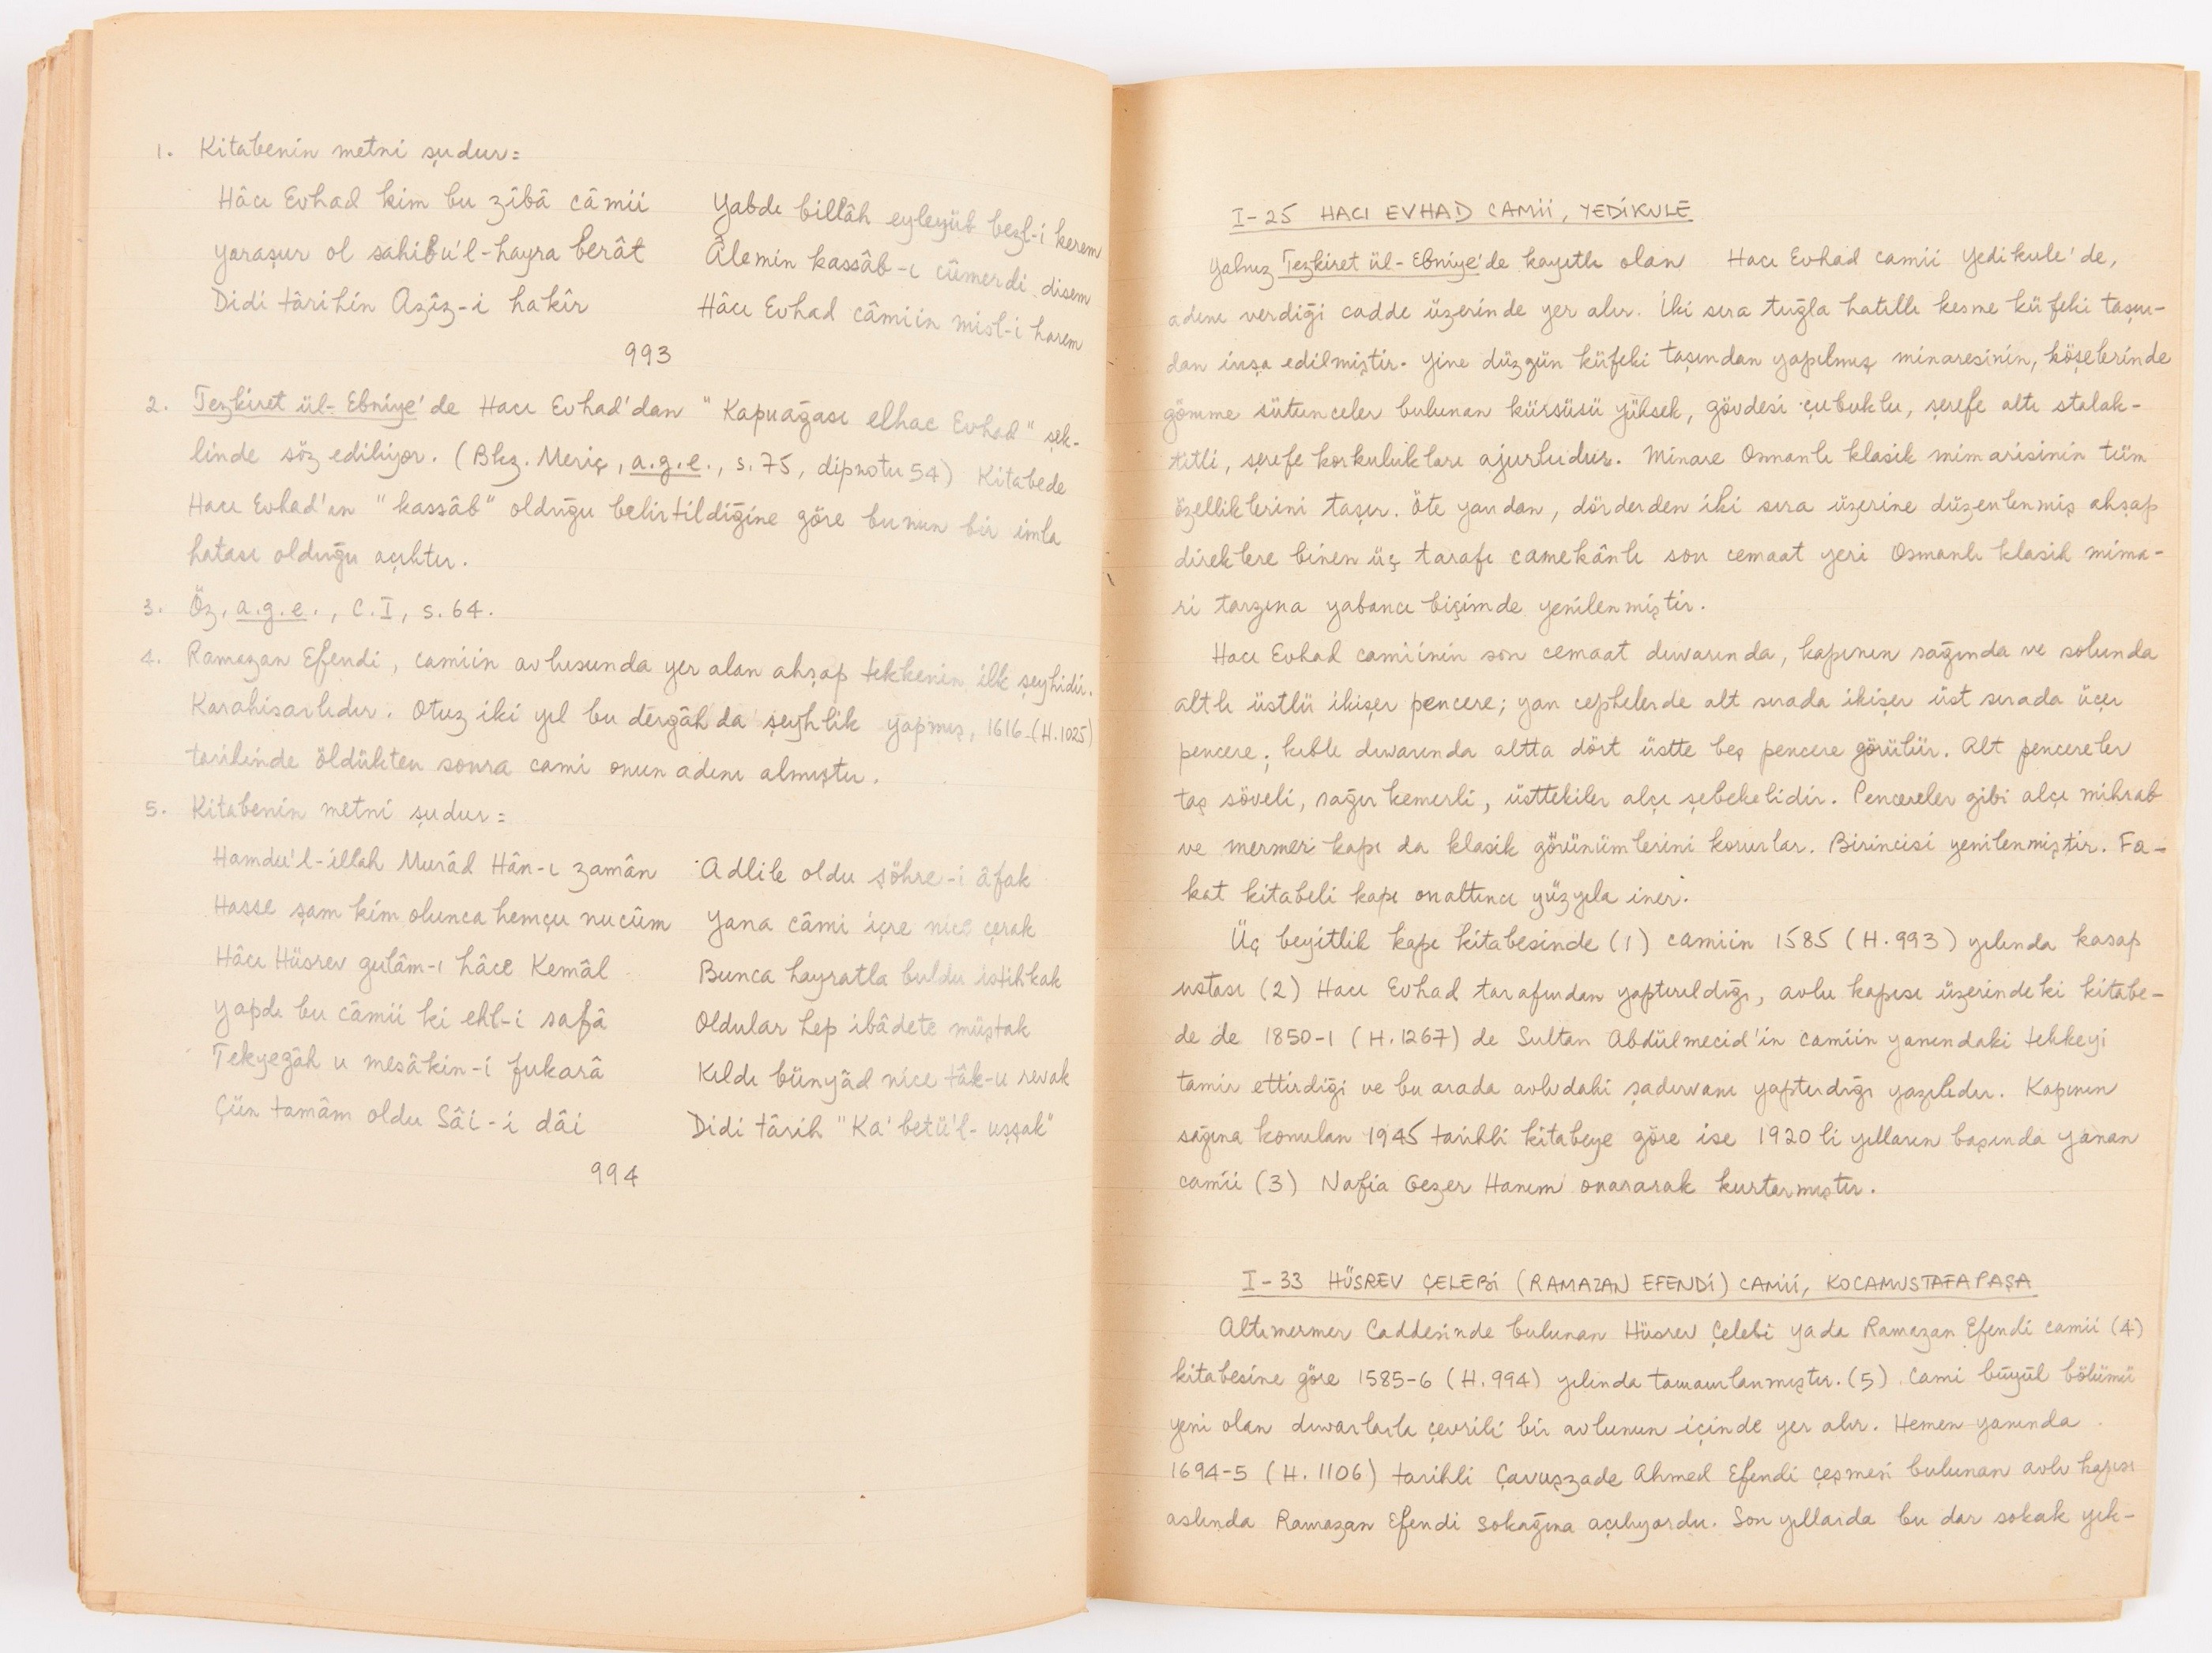 1. Kitabenin metni şudur:
Hâcı Evhad kim bu zîbâ câmii Yabdı billâh eyleyüb bezl-i kerem
Yaraşur ol sahibu'l-hayra berât Âlemin kassâb-ı cümerdi disem
Didi târihin Azîz-i hakîr Hâcı Evhad câmiin misl-i harem
993
2. Tezkiret ül-Ebniye'de Hacı Evhad'dan "Kapuağası elhac Evhad" şek-
linde söz ediliyor. (Bkz. Meriç, a.g.e., s.75, dipnotu 54) Kitabede
Hacı Evhad'ın "kassâb" olduğu belirtildiğine göre bunun bir imla
hatası olduğu açıktır.
3. Öz, a.g.e., C.I, s.64.
4. Ramazan Efendi, camiin avlusunda yer alan ahşap tekkenin ilk şeyhidir.
Karahisarlıdır. Otuz iki yıl bu dergâhda şeyhlik yapmış, 1616 (H.1025)
tarihinde öldükten sonra cami onun adını almıştır.
5. Kitabenin metni şudur:
Hamdu'l-illah Murâd Hân-ı zamân Adlile oldu şöhre-i âfak
Hasse şam kim olunca hemçu nucûm Yana câmi içre nice çerak
Hâcı Hüsrev gulâm-ı hâce Kemâl Bunca hayratla buldu istihkak
Yapdı bu câmii ki ehl-i safâ Oldular hep ibâdete müştak
Tekyegâh u mesâkin-i fukarâ Kıldı bünyâd nice tâk-u revak
Çün tamâm oldu Sâi-i dâi Didi târih "Ka'betü'l-uşşak"
994
I-25 HACI EVHAD CAMİİ, YEDİKULE
Yalnız Tezkiret ül-Ebniye'de kayıtlı olan Hacı Evhad camii Yedikule'de,
adını verdiği cadde üzerinde yer alır. İki sıra tuğla hatıllı kesme küfeki taşın-
dan inşa edilmiştir. Yine düzgün küfeki taşından yapılmış minaresinin, köşelerinde
gömme sütunceler bulunan kürsüsü yüksek, gövdesi çubuklu, şerefe altı stalak-
titli, şerefe korkulukları ajurludur. Minare Osmanlı klasik mimarisinin tüm
özelliklerini taşır. Öte yandan, dörderden iki sıra üzerine düzenlenmiş ahşap
direklere binen üç tarafı camekânlı son cemaat yeri Osmanlı klasik mima-
ri tarzına yabancı biçimde yenilenmiştir.
Hacı Evhad camiinin son cemaat duvarında, kapının sağında ve solunda
altlı üstlü ikişer pencere; yan cephelerde alt sırada ikişer üst sırada üçer
pencere; kıble duvarında altta dört üstte beş pencere görülür. Alt pencereler
taş söveli, sağır kemerli, üsttekiler alçı şebekelidir. Pencereler gibi alçı mihrab
ve mermer kapı da klasik görünümlerini korurlar. Birincisi yenilenmiştir. Fa-
kat kitabeli kapı onaltıncı yüzyıla iner.
Üç beyitlik kapı kitabesinde (1) camiin 1585 (H.993) yılında kasap
ustası (2) Hacı Evhad tarafından yaptırıldığı, avlu kapısı üzerindeki kitabe-
de de 1850-1 (H.1267) de Sultan Abdülmecid'in camiin yanındaki tekkeyi
tamir ettirdiği ve bu arada avludaki şadırvanı yaptırdığı yazılıdır. Kapının
sağına konulan 1945 tarihli kitabeye göre ise 1920 li yılların başında yanan
camii (3) Nafia Gezer Hanım onararak kurtarmıştır.
I-33 HÜSREV ÇELEBİ (RAMAZAN EFENDİ) CAMİİ, KOCAMUSTAFAPAŞA
Altımermer Caddesinde bulunan Hüsrev Çelebi yada Ramazan Efendi camii (4)
kitabesine göre 1585-6 (H.994) yılında tamamlanmıştır. (5) Cami büyük bölümü
yeni olan duvarlarla çevrili bir avlunun içinde yer alır. Hemen yanında
1694-5 (H. 1106) tarihli Çavuşzade Ahmed Efendi çeşmesi bulunan avlu kapısı
aslında Ramazan Efendi sokağına açılıyordu. Son yıllarda bu dar sokak yık-